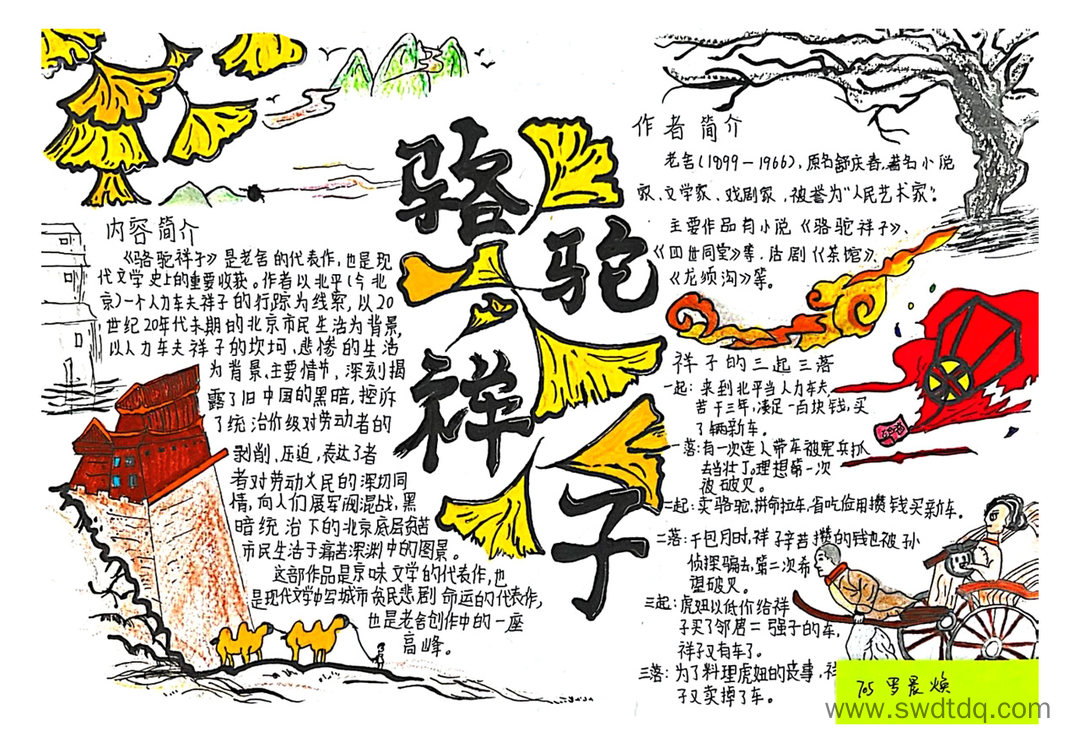 骆驼祥子
内容简介
《骆驼祥子》是老舍的代表作，也是现
代文学史上的重要收获。作者以北平(今北
京)一个人力车夫祥子的行踪为线索，以20
世纪20年代末期的北京市民生活为背景，
以人力车夫祥子的坎坷、悲惨的生活
为背景、主要情节，深刻揭
露了旧中国的黑暗，控诉
了统治阶级对劳动者的
剥削、压迫，表达了者
者对劳动人民的深切同
情，向人们展军阀混战，黑
暗统治下的北京底层贫苦
市民生活于痛苦深渊中的图景。
这部作品是京味文学的代表作，也
是现代文学中写城市贫民悲剧命运的代表作，
也是老舍创作中的一座
高峰。
作者简介
老舍(1899-1966)，原名舒庆春，著名小说
家、文学家、戏剧家，被誉为"人民艺术家"。
主要作品有小说《骆驼祥子》、
《四世同堂》等，话剧《茶馆》、
《龙须沟》等。
祥子的三起三落
一起：来到北平当人力车夫
苦干三年，凑足一百块钱，买
了辆新车。
一落：有一次连人带车被宪兵抓
去当壮丁。理想第一次
被破灭。
二起：卖骆驼，拼命拉车，省吃俭用攒钱买新车。
二落：干包月时，祥子辛苦攒的钱也被孙
侦探骗去，第二次希
望破灭。
三起：虎妞以低价给祥
子买了邻居二强子的车，
祥子又有车了。
三落：为了料理虎妞的丧事，祥
子又卖掉了车。
705 罗晨焕
www.swdtdq.com